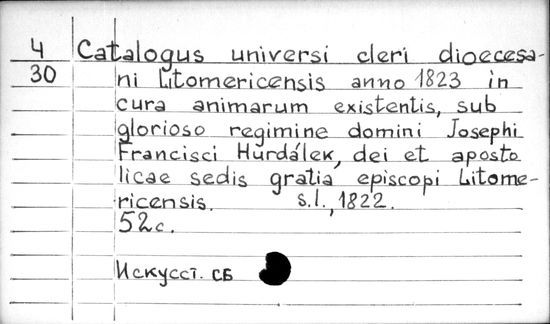 4 Catalogus universi cleri dioecesa-
30 ni Litomericensis anno 1823 in
cura animarum existentis, sub
glorioso regimine domini Josephi
Francisci Hurdálek, dei et aposto
licae sedis gratia episcopi Litome-
ricensis. s.l., 1822.
52c.
Искусст. сб